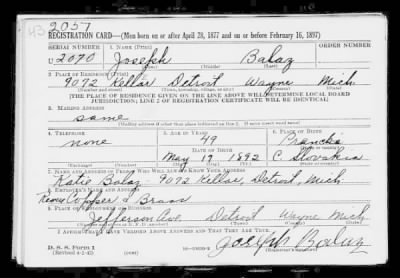 2057
REGISTRATION CARD—(Men born on or after April 28, 1877 and on or before February 16, 1897)
SERIAL NUMBER 1. NAME (Print) ORDER NUMBER
U 2070 Joseph Balaz
(First) (Middle) (Last)
2. PLACE OF RESIDENCE (Print)
9092 Kellar Detroit Wayne Mich.
(Number and street) (Town, township, village, or city) (County) (State)
[THE PLACE OF RESIDENCE GIVEN ON THE LINE ABOVE WILL DETERMINE LOCAL BOARD
JURISDICTION; LINE 2 OF REGISTRATION CERTIFICATE WILL BE IDENTICAL]
3. MAILING ADDRESS
same
[Mailing address if other than place indicated on line 2. If same insert word same]
4. TELEPHONE 5. AGE IN YEARS 6. PLACE OF BIRTH
none 49
DATE OF BIRTH
May 19 1892 C. Slovakia
(Exchange) (Number) (Mo.) (Day) (Yr.) (State or country)
7. NAME AND ADDRESS OF PERSON WHO WILL ALWAYS KNOW YOUR ADDRESS
Katie Balaz 9092 Kellar, Detroit, Mich
8. EMPLOYER'S NAME AND ADDRESS
Copper & Brass
9. PLACE OF EMPLOYMENT OR BUSINESS
Jefferson Ave. Detroit Wayne Mich
I AFFIRM THAT I HAVE VERIFIED ABOVE ANSWERS AND THAT THEY ARE TRUE.
D. S. S. Form 1
(Revised 4-1-42) (over) Joseph Balaz